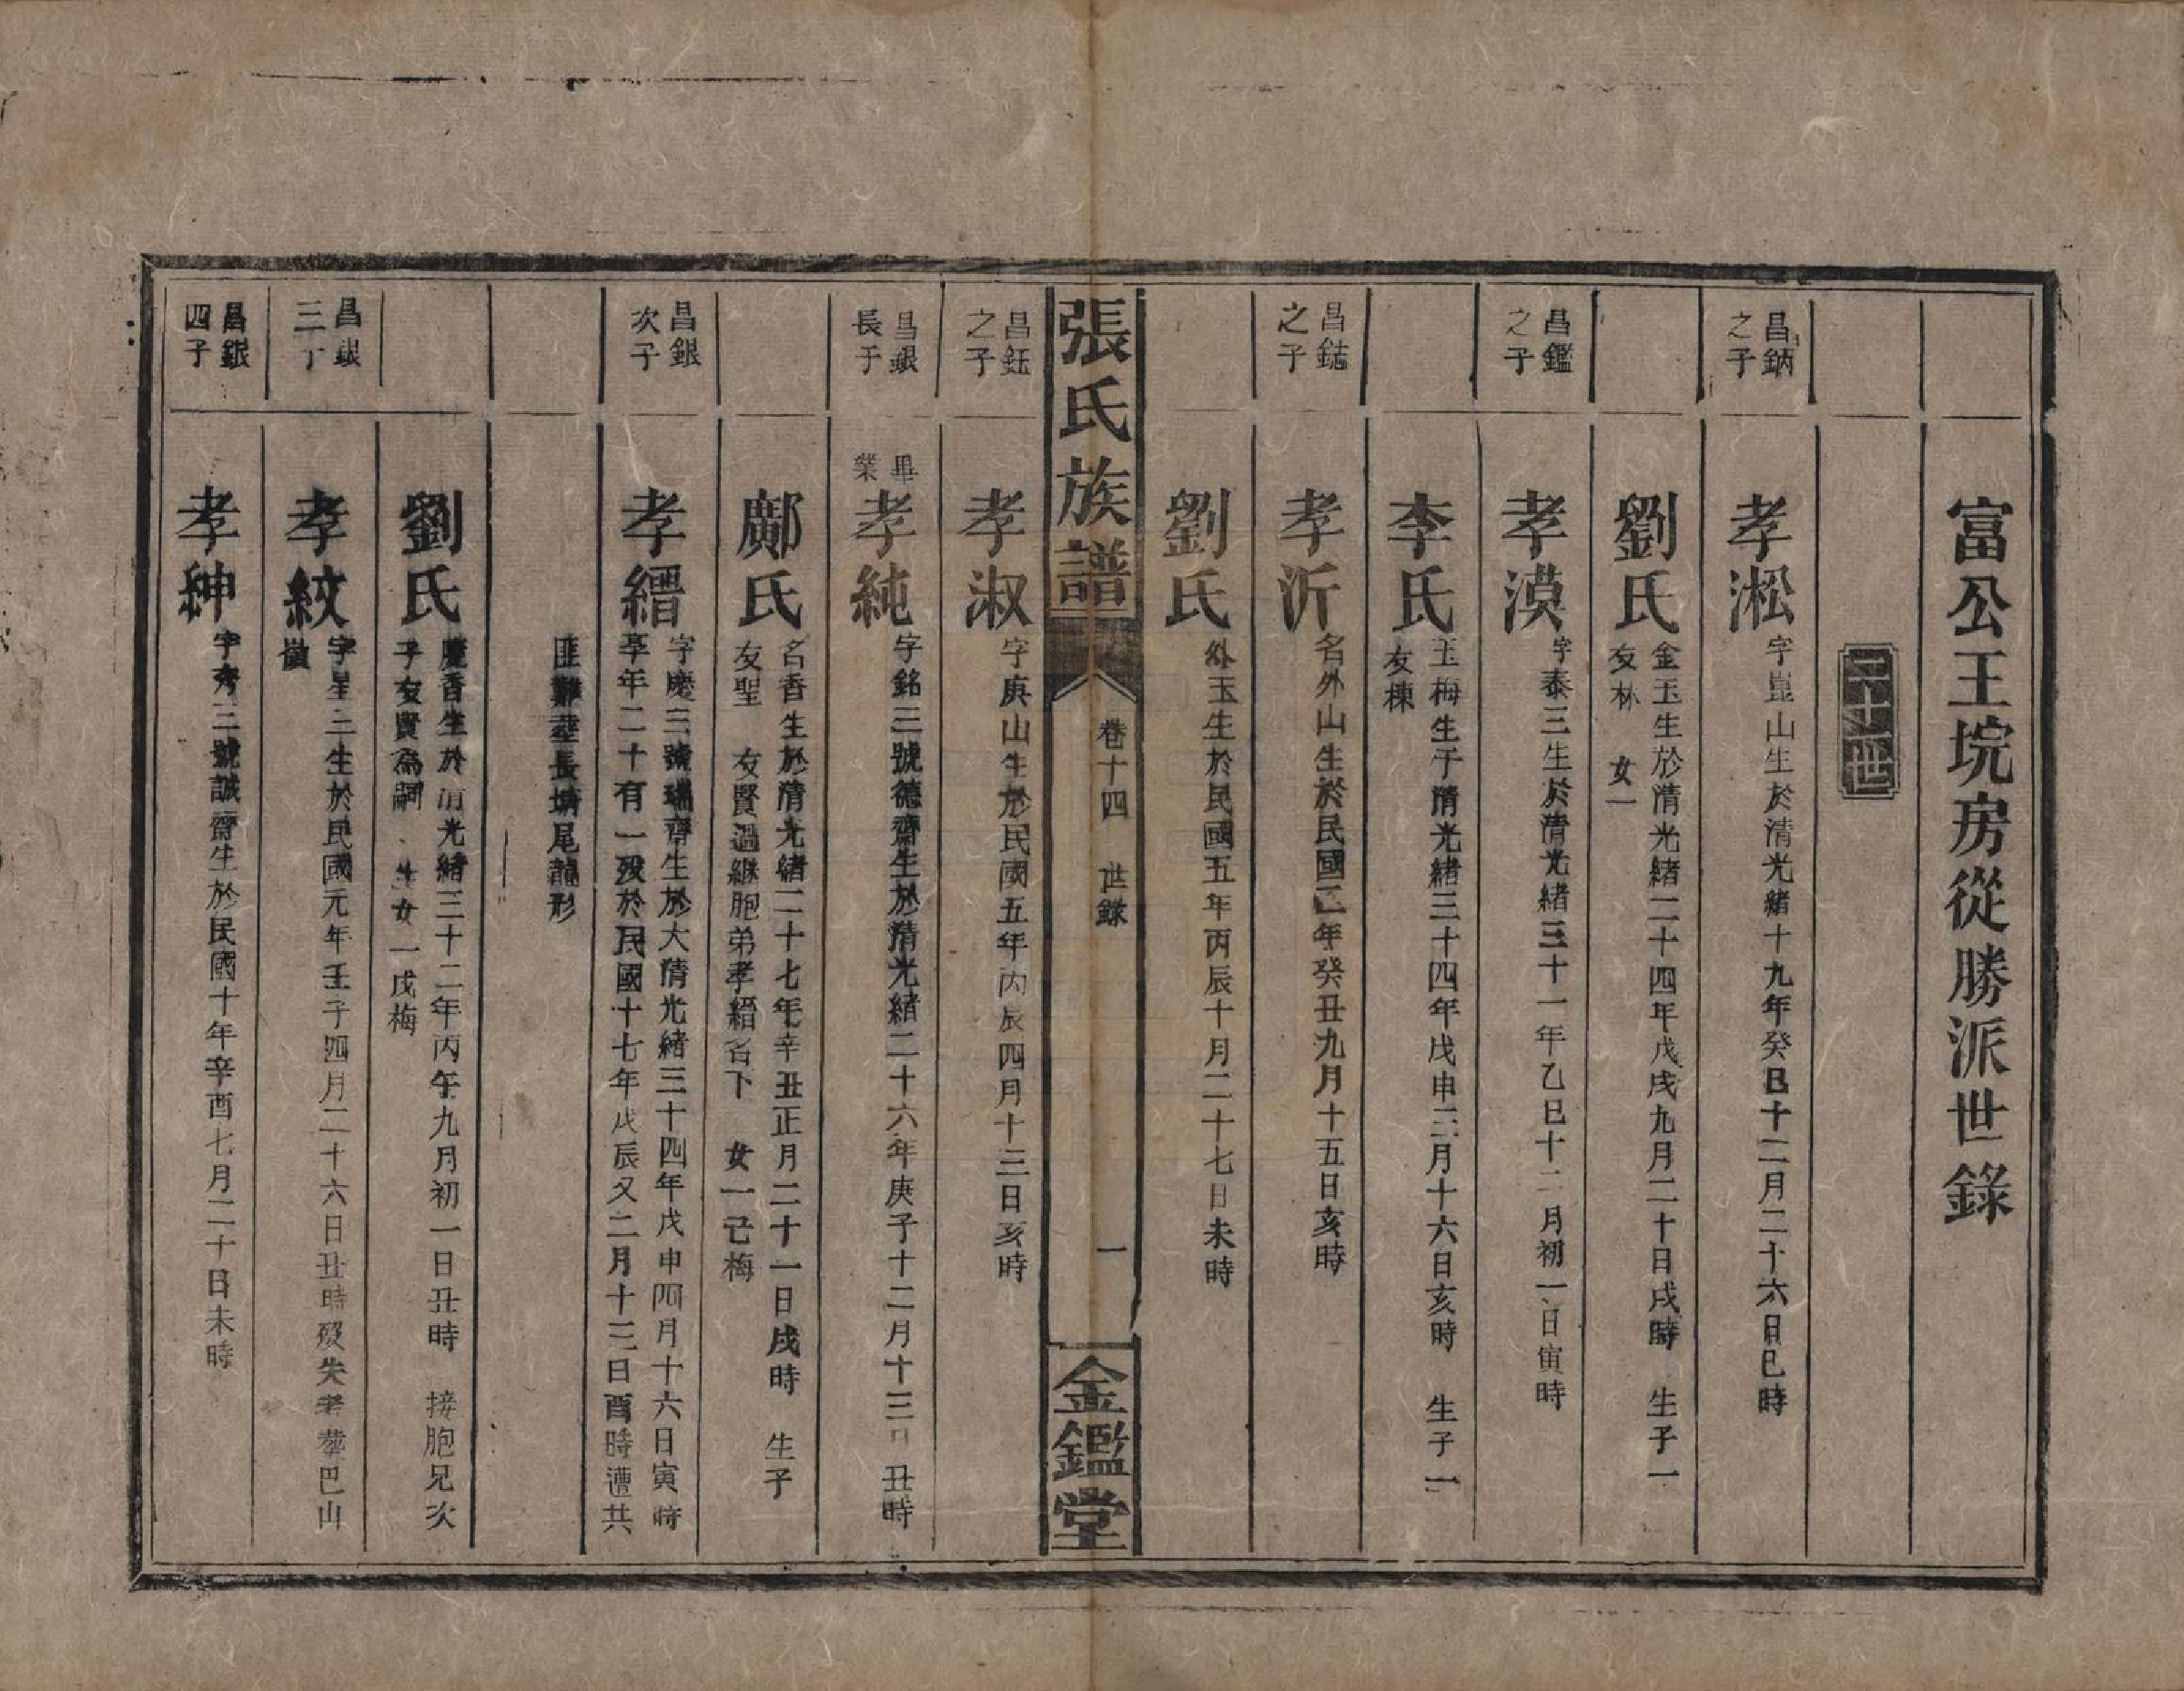 富公王垸房從勝派世錄
二十世
昌鈵之子
孝淞
字崑山生於清光緒十九年癸巳十二月二十六日巳時
劉氏
金玉生於清光緒二十四年戊戌九月二十日戌時 生子一
友林 女一
昌鑑之子
孝漠
字泰三生於清光緒三十一年乙巳十二月初一日寅時
李氏
玉梅生于清光緒三十四年戊申三月十六日亥時 生子一
友棟
昌鋕之子
孝沂
名外山生於民國二年癸丑九月十五日亥時
劉氏
外玉生於民國五年丙辰十月二十七日未時
張氏族譜
卷十四 世錄
一
金鑑堂
昌鈺之子
孝淑
字庚山生於民國五年丙辰四月十三日亥時
昌銀長子
畢業
孝純
字銘三號德齋生於清光緒二十六年庚子十二月十三日丑時
鄺氏
名香生於清光緒二十七年辛丑正月二十一日戌時 生子
友聖 友賢過継胞弟孝縉名下 女一已梅
昌銀次子
孝縉
字慶三號瑞齊生於大清光緒三十四年戊申四月十六日寅時
享年二十有一歿於民國十七年戊辰又二月十三日酉時遭共
匪難塟長塘尾龍形
劉氏
慶香生於清光緒三十二年丙午九月初一日丑時 接胞兄次
子友賢為嗣 生女一戊梅
昌銀三丁
孝紋
字星三生於民國元年壬子四月二十六日丑時歿失考塟巴山
嶺
昌銀四子
孝紳
字秀三號誠齋生於民國十年辛酉七月二十日未時